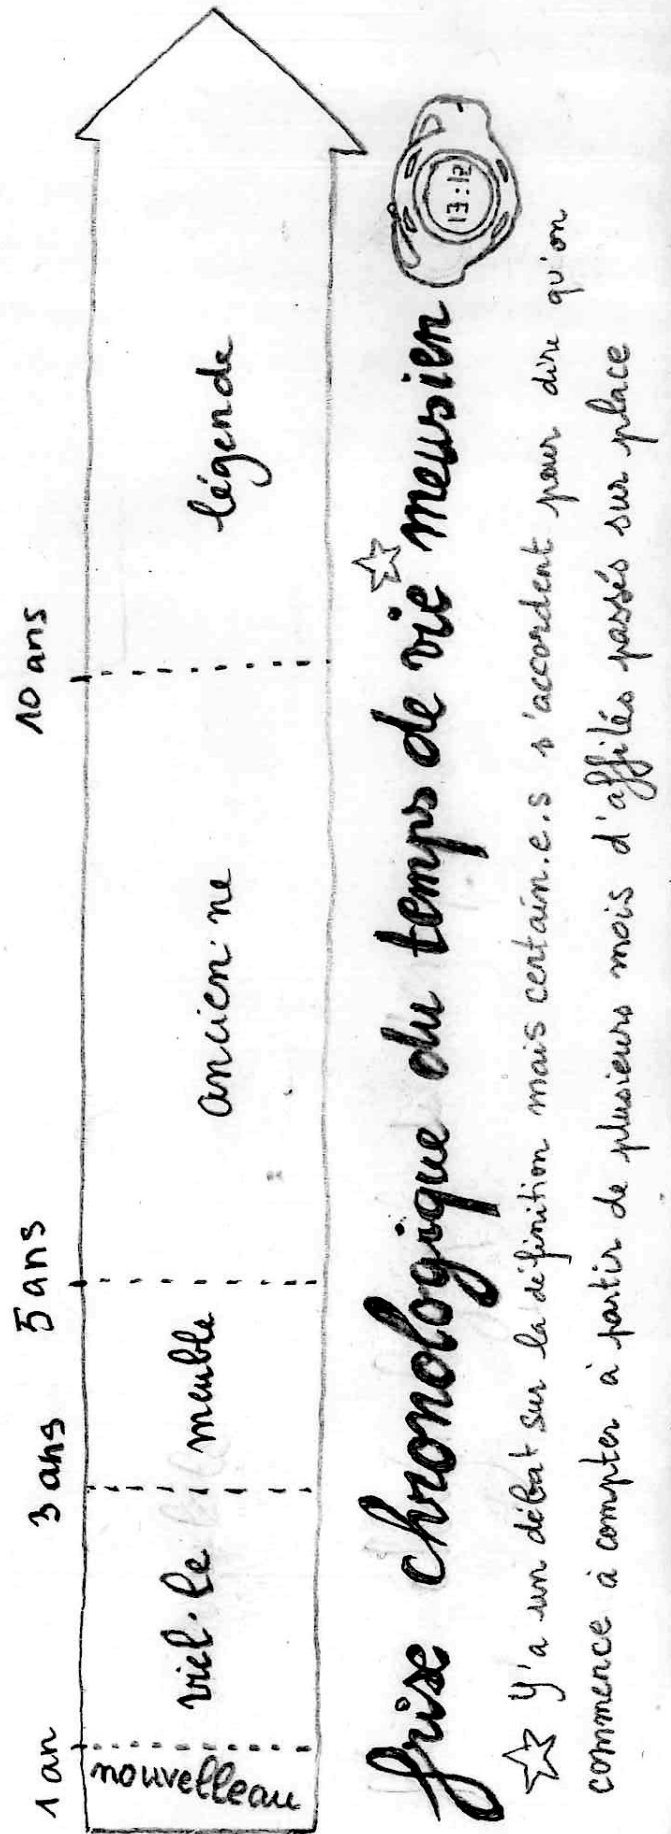 1 an 3 ans 5 ans 10 ans
nouvelleau viel·le meuble ancien·ne légende
frise chronologique du temps de vie☆ meusien
13:12
☆ Y'a un débat sur la définition mais certain.e.s s'accordent pour dire qu'on
commence à compter à partir de plusieurs mois d'affilés passés sur place